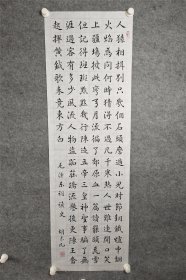 人猿相揖别只幾個石頭磨過小兒時節銅鐵爐中翻
火焰為問何時猜得不過幾千寒熱人世難逢開口笑
上疆場彼此彎弓月流遍了郊原血一篇讀罷頭飛雪
但記得斑斑點點幾行陳迹五帝三皇神聖事騙了無
涯過客有多少風流人物盜跖莊蹻流譽後更陳王奮
起揮黃鉞歌未竟東方白
毛澤東詞讀史